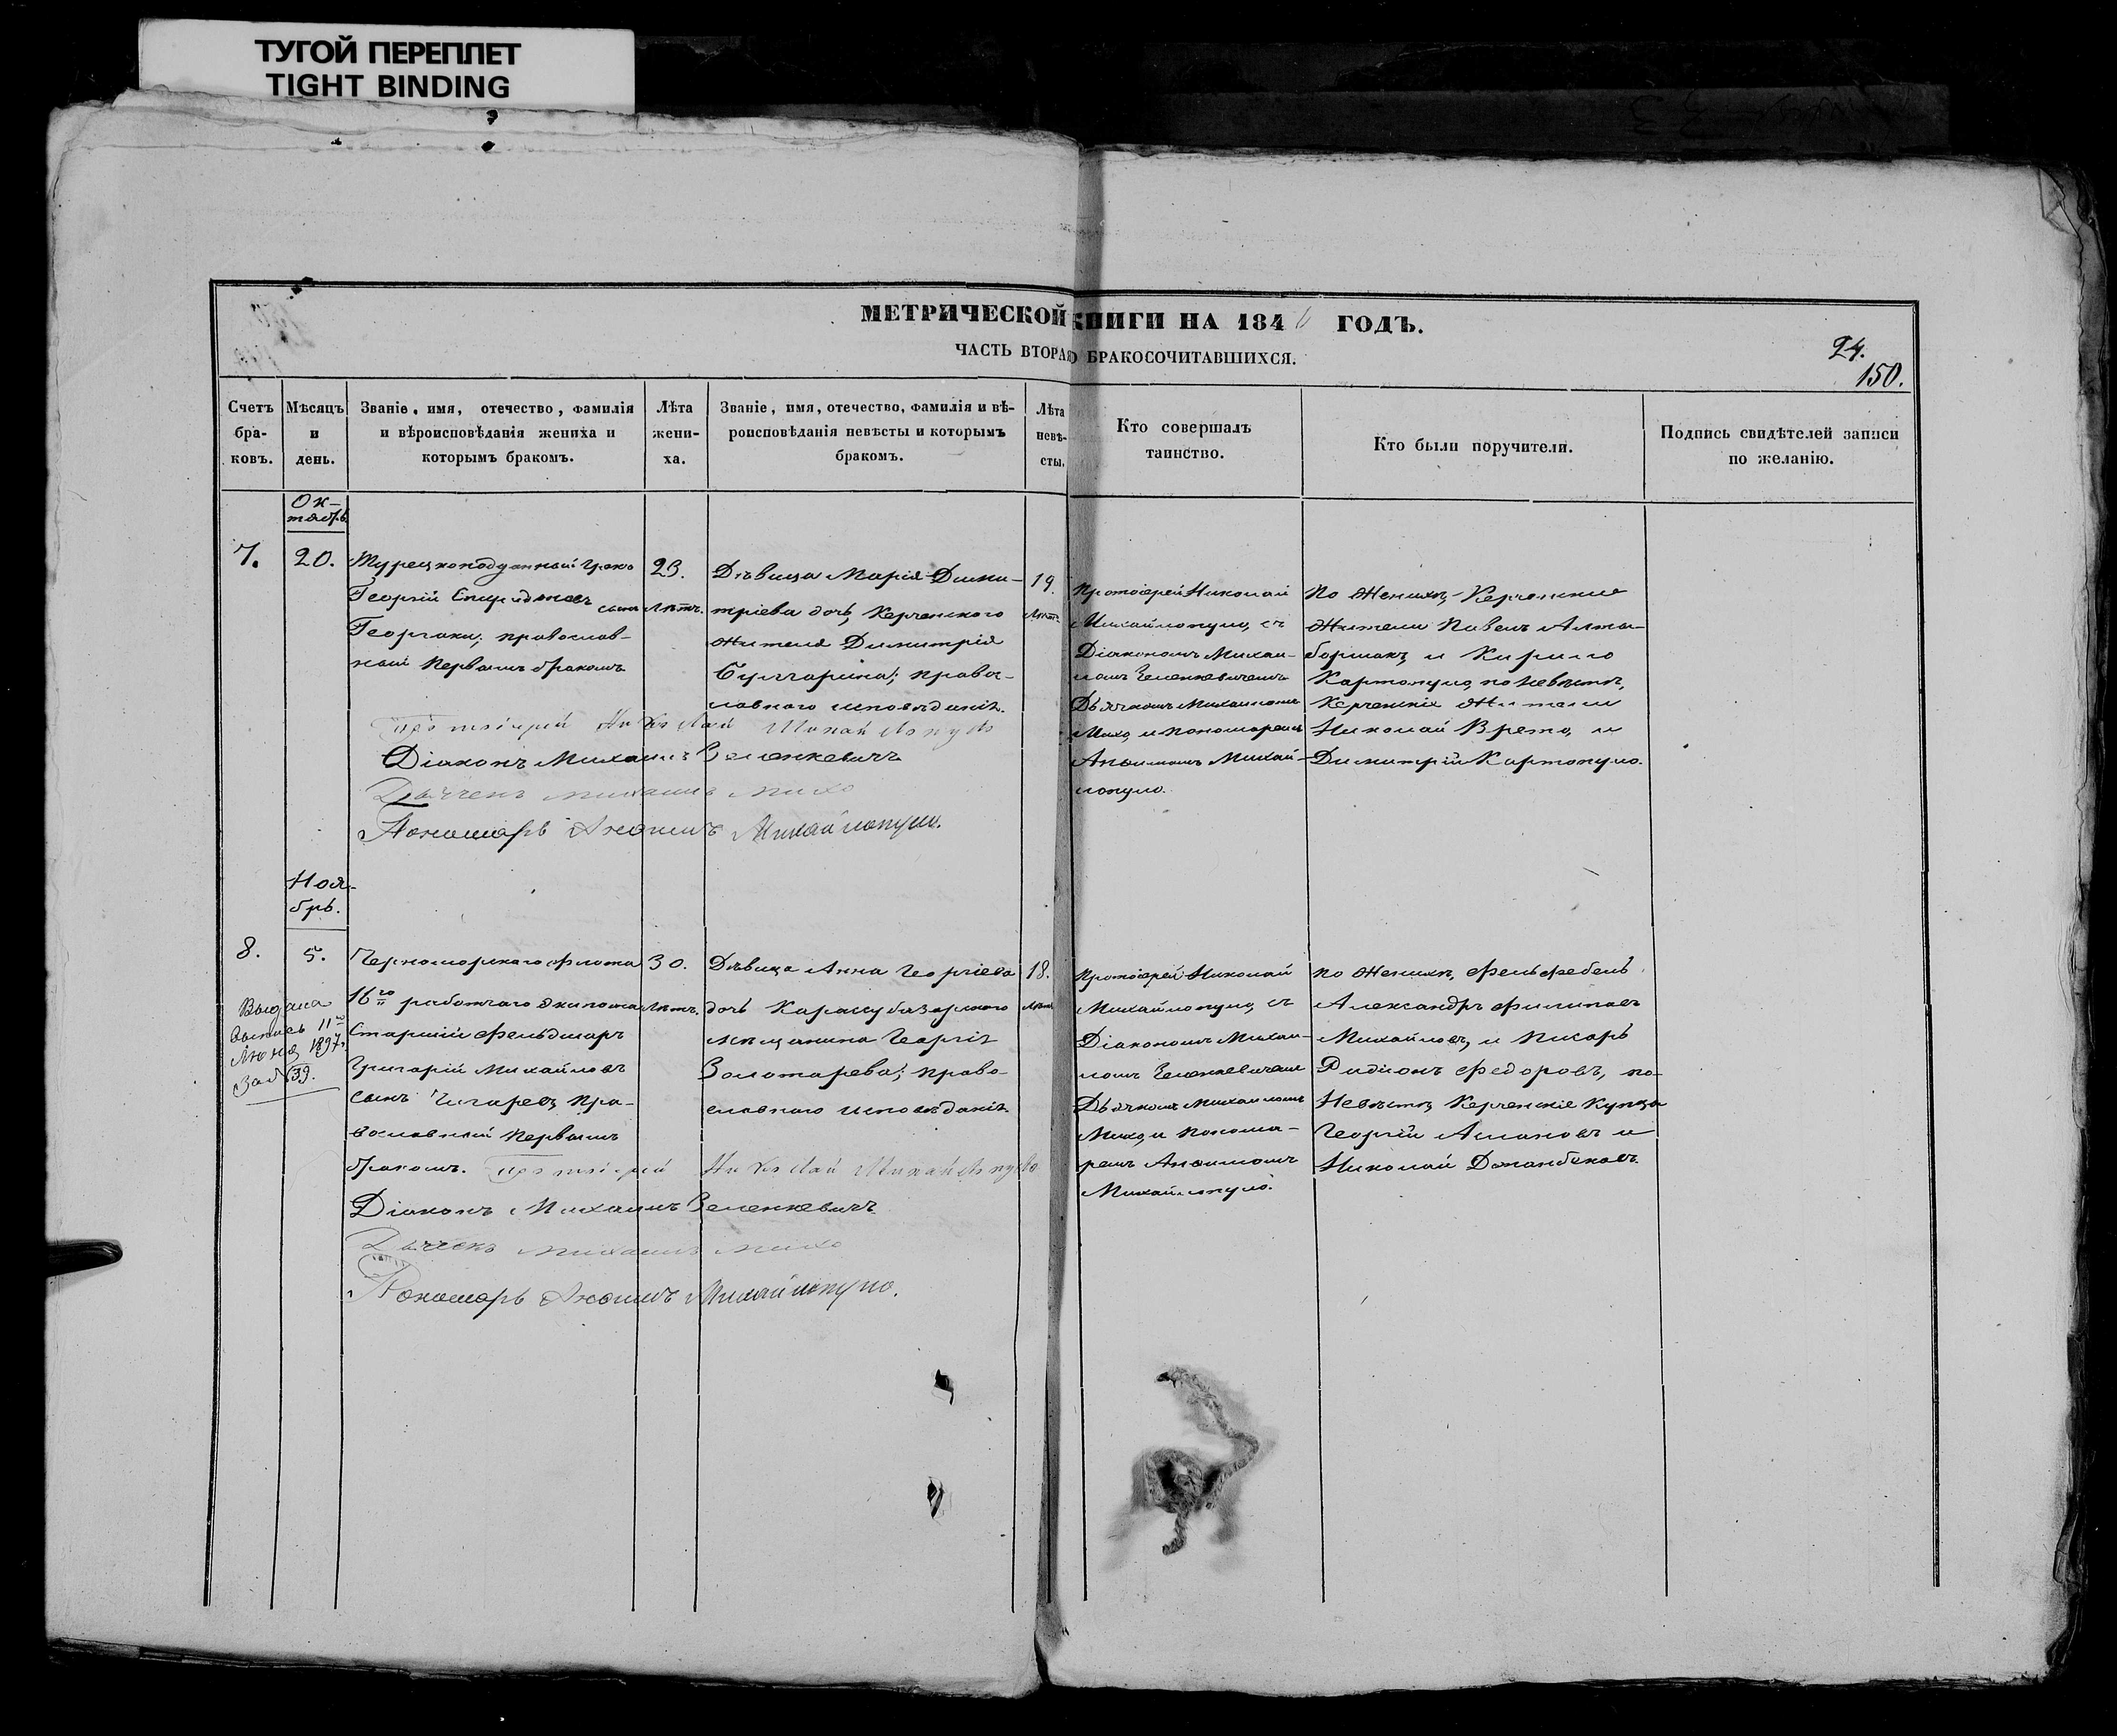 ТУГОЙ ПЕРЕПЛЕТ
TIGHT BINDING
МЕТРИЧЕСКОЙ КНИГИ НА 184 ГОДЪ.
ЧАСТЬ ВТОРАЯ О БРАКОСОЧИТАВШИХСЯ.
24.
150.
Счетъ
бра-
ковъ.
Мѣсяцъ
и
день.
Званіе, имя, отечество, фамилія
и вѣроисповѣданія жениха и
которымъ бракомъ.
Лѣта
жени-
ха.
Званіе, имя, отечество, фамилія и вѣ-
роисповѣданія невѣсты и которымъ
бракомъ.
Лѣта
невѣ-
сты.
Кто совершалъ
таинство.
Кто были поручители.
Подпись свидѣтелей записи
по желанію.
Ок-
тябрь
7.
20.
Турецкоподданный Грекъ
Георгій сынъ
Георгаки; православ-
ный первымъ бракомъ
23.
Лѣтъ.
Дѣвица Марія Дими-
тріева дочь, Керченского
жителя Димитрія
Булгарина; право-
славного исповѣданія.
19.
Лѣтъ.
Протоіерей Николай
Михайлопуло, съ
Діакономъ Михаи-
ломъ Зеленкевичемъ
Дьячкомъ Михаиломъ
Михо, и пономаремъ
Михай-
лопуло.
По Женихѣ, Керченскіе
Жители Павелъ
и Кирило
Картопуло, по невѣстѣ,
Керченскіе Жители
Николай Врето, и
Димитрій Картопуло.
Протоіерей Николай Михайлопуло
Діаконъ Михаилъ Зеленкевичъ
Дьячекъ Михаилъ Михо
Пономарь Михайлопуло.
Ноя-
брь.
8.
5.
Выдана
выпись 11го
1897г.
За № 39.
Черноморскаго флота
16го рабочаго экипажа
Старшій фельдшеръ
Григорій Михайловъ
сынъ пра-
вославный первымъ
бракомъ.
30.
Лѣтъ.
Дѣвица Анна Георгіева
дочь Карассубазарского
мѣщанина Георгія
Золотарева; право-
славного исповѣданія
18.
Лѣтъ
Протоіерей Николай
Михайлопуло, съ
Діакономъ Михаи-
ломъ Зеленкевичемъ
Дьячкомъ Михаиломъ
Михо, и понома-
ремъ
Михайлопуло.
По Женихѣ, Фельдфебель
Александръ Филиповъ
Михайловъ, и Писарь
Родіонъ Федоровъ, по-
Невѣстѣ, Керченскіе Купцы
Георгій Аслановъ и
Николай Джанбековъ.
Протоіерей Николай Михайлопуло
Діаконъ Михаилъ Зеленкевичъ
Дьячекъ Михаилъ Михо
Пономарь Михайлопуло.